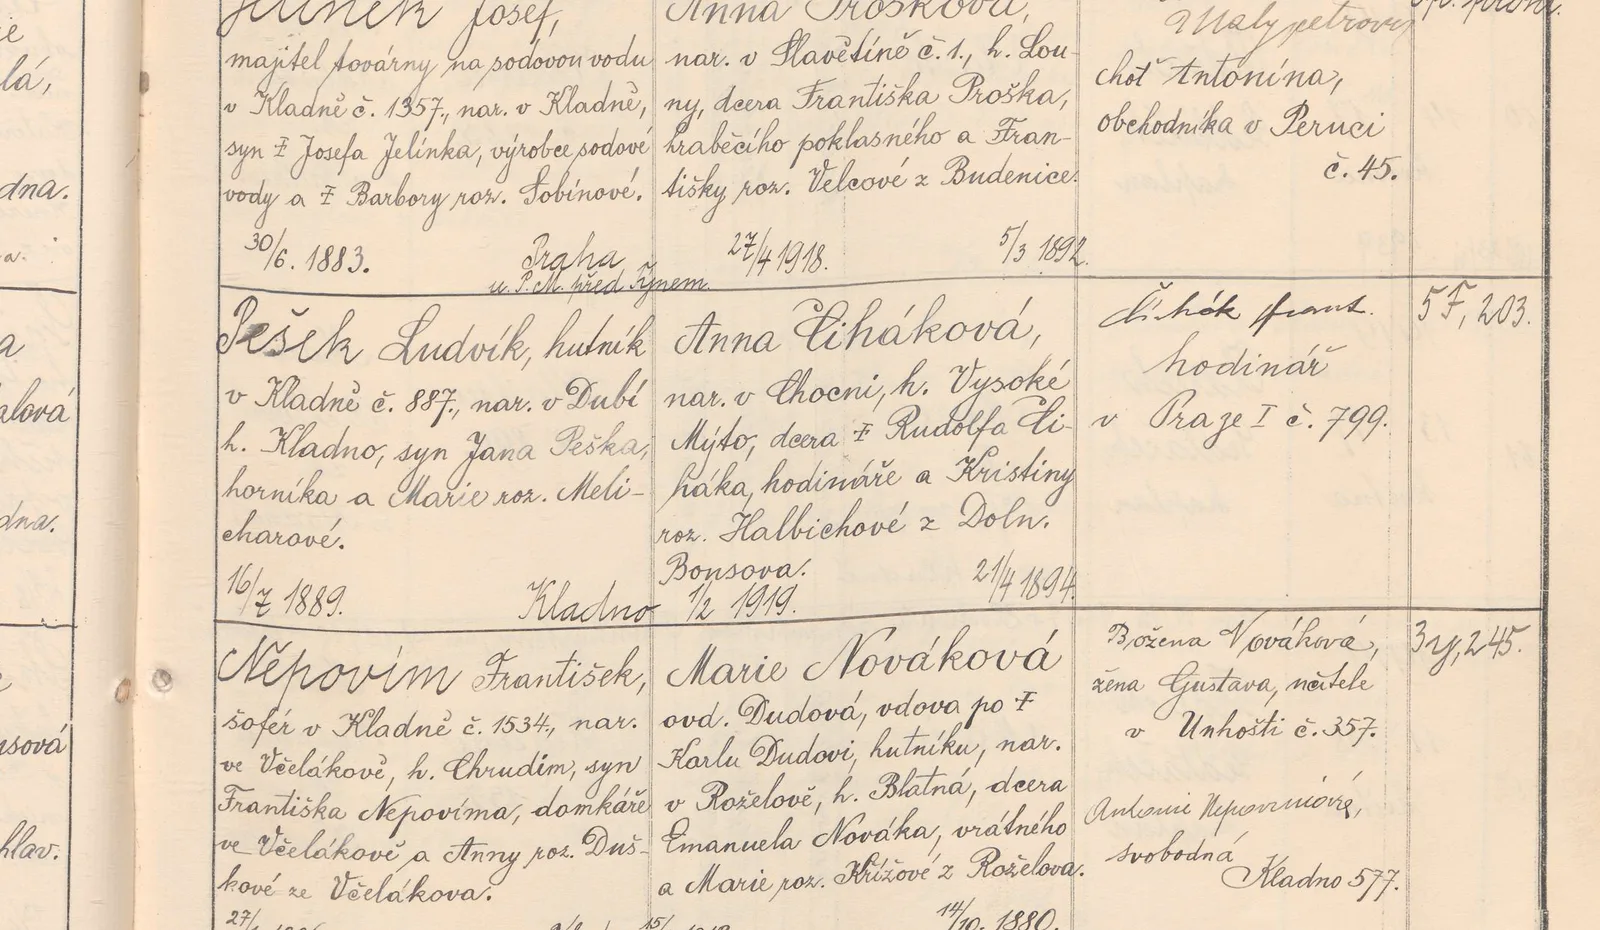 Jelínek Josef,
majitel továrny na sodovou vodu
v Kladně č. 1357., nar. v Kladně,
syn ‡ Josefa Jelínka, výrobce sodové
vody a ‡ Barbory roz. Sobínové.
30/6. 1883. Praha
u P. M. před Týnem.
Anna Prošková,
nar. v Slavětíně č. 1., h. Lou-
ny, dcera Františka Proška,
hraběcího poklasného a Fran-
tišky roz. Velcové z Budenice.
27/4 1918. 5/3 1892.
choť Antonína,
obchodníka v Peruci
č. 45.
Pešek Ludvík, hutník
v Kladně č. 887., nar. v Dubí
h. Kladno, syn Jana Peška,
horníka a Marie roz. Meli-
charové.
16/7 1889. Kladno
Anna Čiháková,
nar. v Chocni, h. Vysoké
Mýto, dcera ‡ Rudolfa Či-
háka, hodináře a Kristiny
roz. Halbichové z Doln.
Bousova. 21/4 1894.
1/2 1919.
Čihák Frant.
hodinář
v Praze I č. 799.
5 F, 203.
Nepovím František,
šofér v Kladně č. 1534., nar.
ve Včelákově, h. Chrudim, syn
Františka Nepovíma, domkáře
ve Včelákově a Anny roz. Duš-
kové ze Včelákova.
27/
Marie Nováková
ovd. Dudová, vdova po ‡
Karlu Dudovi, hutníku, nar.
v Roželově, h. Blatná, dcera
Emanuela Nováka, vrátného
a Marie roz. Křížové z Roželova.
15/ 14/10. 1880.
Božena Nováková,
žena Gustava, učitele
v Unhošti č. 357.
Antonie Nepovímová,
svobodná
Kladno 577.
3y, 245.
dna.
a.
a
alová
dna.
usová
hlav.